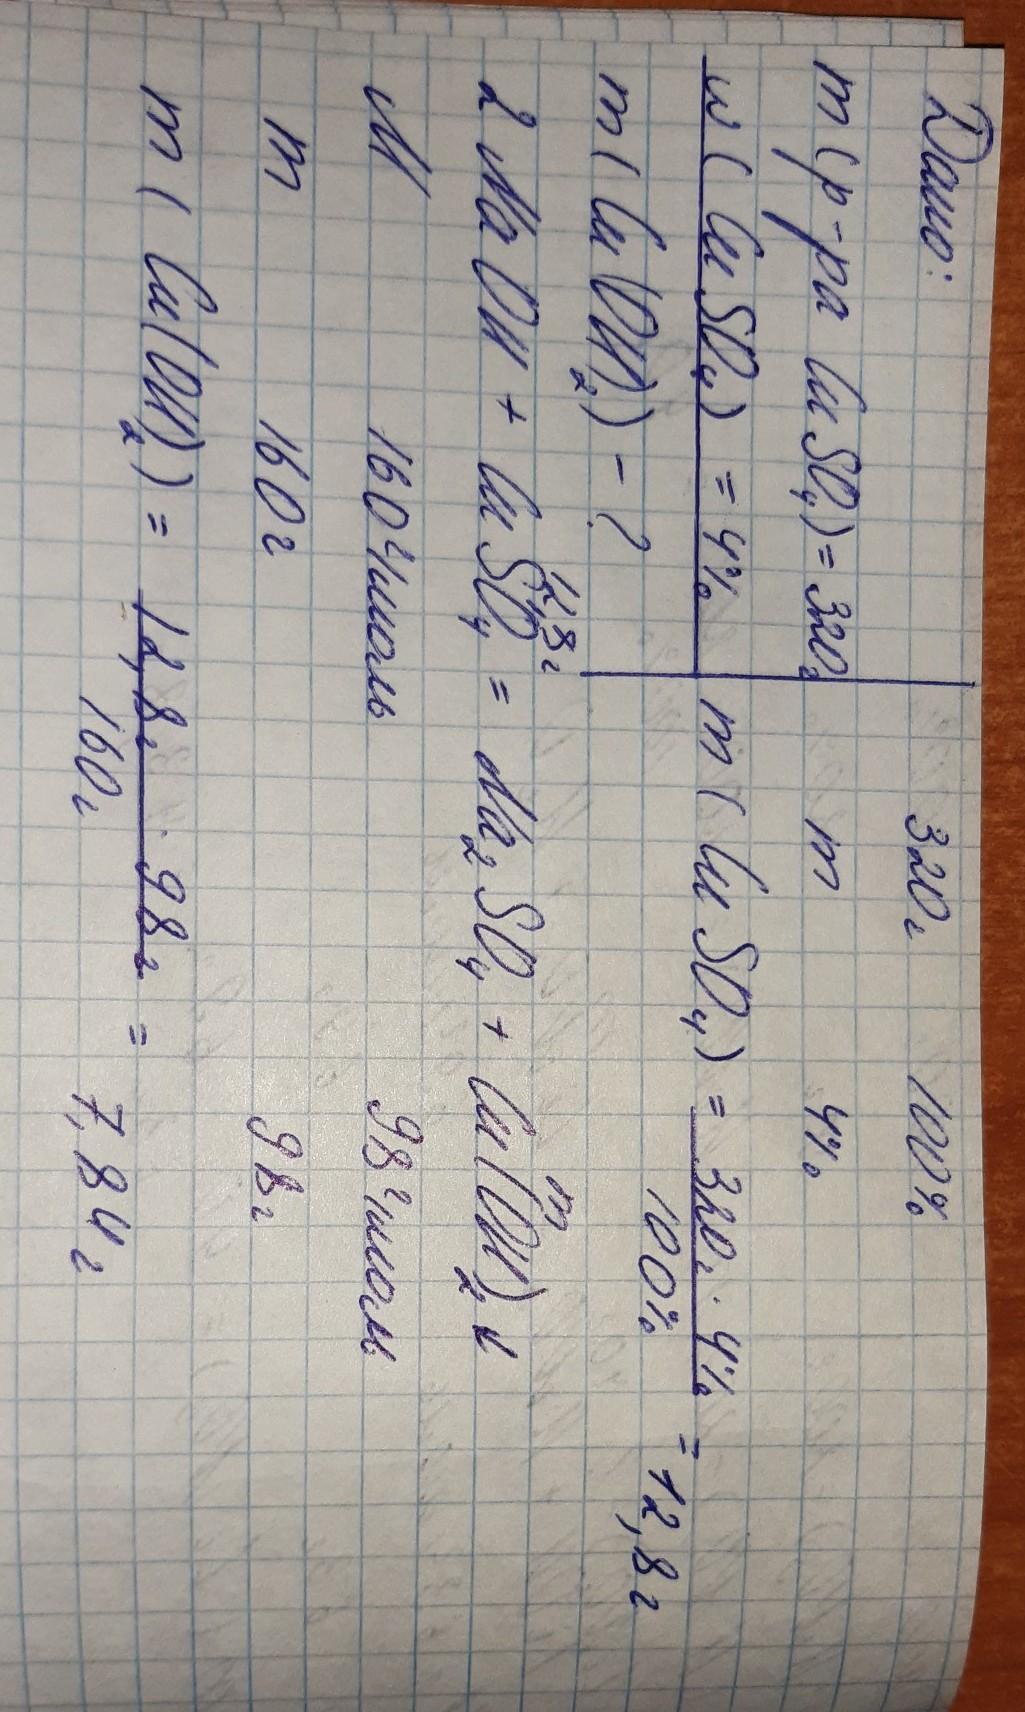 Дано:
m(р-ра CuSO₄)=320г
w(CuSO₄) = 4%
m(Cu(OH)₂) - ?
320г 100%
m 4%
m(CuSO₄) = 320г · 4% / 100% = 12,8г
12,8г m
2NaOH + CuSO₄ = Na₂SO₄ + Cu(OH)₂↓
M 160 г/моль 98 г/моль
m 160г 98г
m(Cu(OH)₂) = 12,8г · 98г / 160г = 7,84г